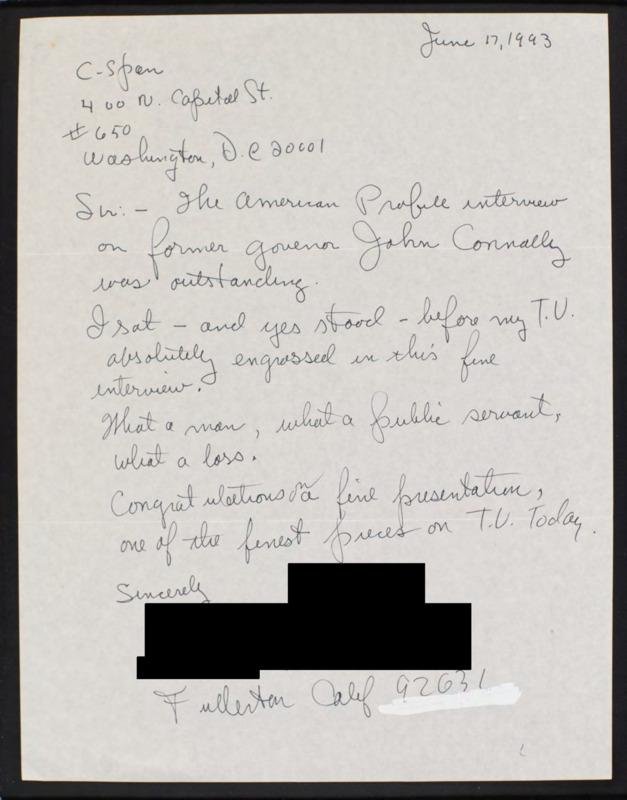 June 17, 1993
C-Span
400 N. Capitol St.
# 650
Washington, D.C 20001
Sir: - The American Profile interview
on former govenor John Connally
was outstanding.
I sat - and yes stood - before my T.V.
absolutely engrossed in this fine
interview.
What a man, what a public servant,
what a loss.
Congratulations on a fine presentation,
one of the finest pieces on T.V. Today.
Sincerely
Fullerton Calif 92631